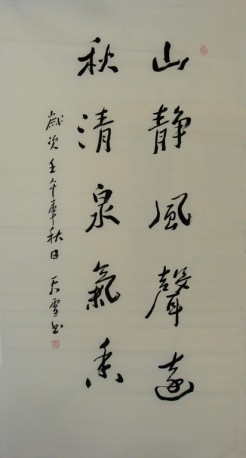 山靜風聲遠
秋清泉氣香
歲次壬午季秋日天雪书